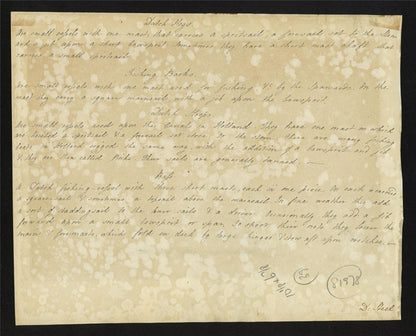 Dutch Hoys.
Are small vessels with one mast, that carries a spritsail, a foresail set to the Stem
and a jib upon a short bowsprit sometimes they have a short mast abaft that
carries a small spritsail.
Fishing Barks
are small vessels with one mast used for fishing &c by the Spaniards. On the
mast they carry a square mainsail with a jib upon the bowsprit.
Dutch Hoys.
are small vessels used upon the Canals in Holland. They have one mast on which
are hoisted a spritsail & a foresail set close to the stem. There are many fishing
boats in Holland rigged the same way, with the addition of a bowsprit and jib
& they are then called Pinks. Their sails are generally tanned.
Buss
A Dutch fishing-vessel with three short masts, each in one piece. On each is carried
a squaresail & sometimes a topsail above the mainsail. In fine weather they add
a sort of studdingsail to the lower sails & a driver. Occasionally they add a jib
forward upon a small bowsprit or spar. To shoot their nets they lower the
main & foremasts, which fold on deck by large hinges & stow aft upon crutches.
(50)
(81978)
D. Steel